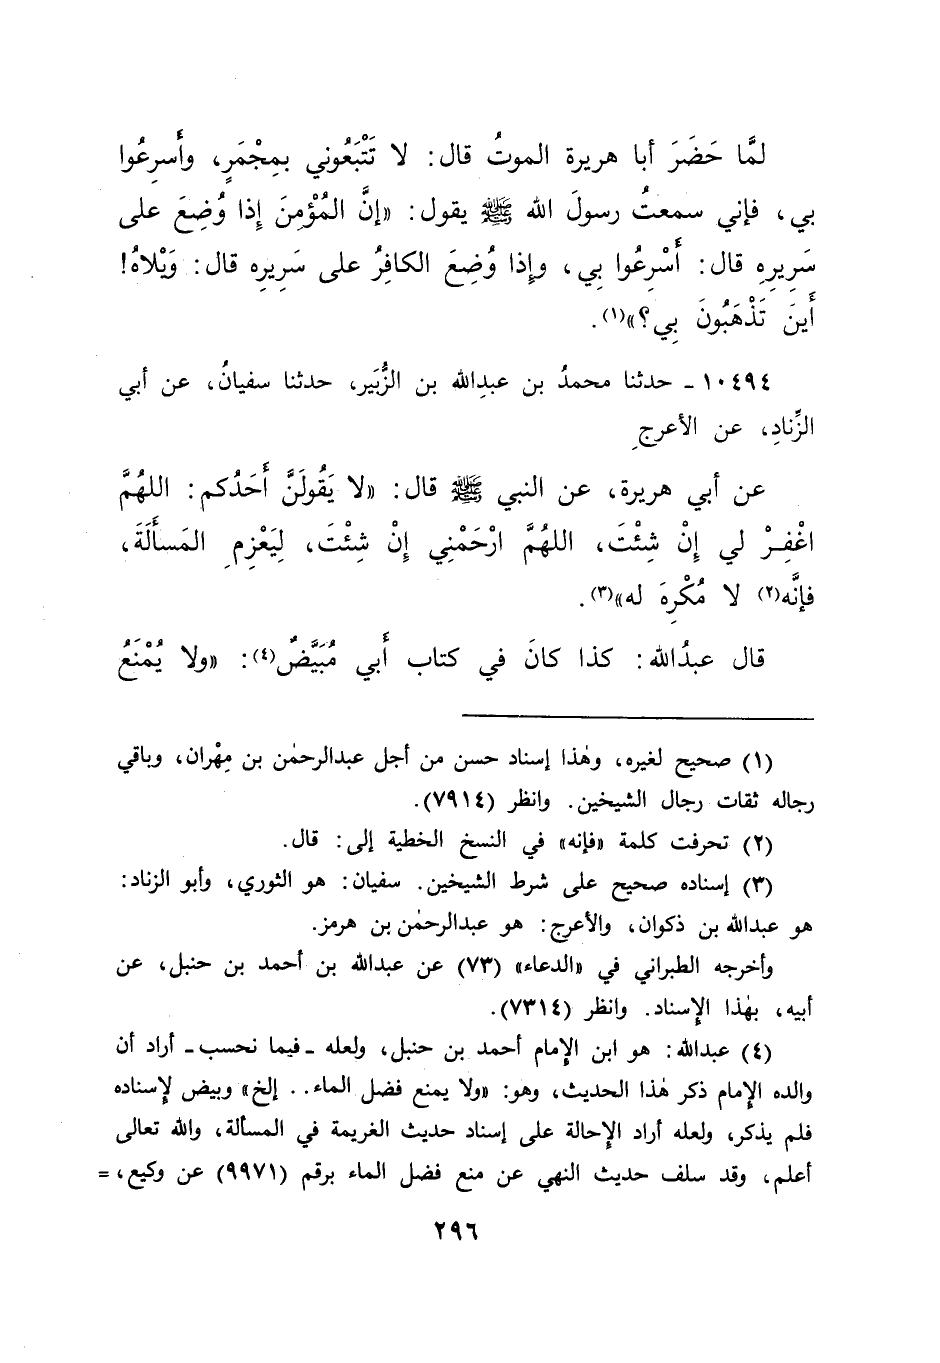 لمَّا حَضَرَ أبا هريرة الموتُ قال: لا تَتْبَعُوني بمِجْمَرٍ، وأَسرِعُوا
بي، فإني سمعتُ رسولَ الله ﷺ يقول: «إنَّ المُؤْمِنَ إِذا وُضِعَ على
سَرِيرِهِ قال: أَسْرِعُوا بِي، وإِذا وُضِعَ الكافِرُ على سَرِيرِه قال: وَيْلاهُ!
أَينَ تَذْهَبُونَ بِي؟»(١).
١٠٤٩٤ - حدثنا محمدُ بن عبدِالله بن الزُّبَير، حدثنا سفيانُ، عن أبي
الزِّنادِ، عن الأعرجِ
عن أبي هريرة، عن النبي ﷺ قال: «لا يَقُولَنَّ أَحَدُكم: اللهُمَّ
اغْفِرْ لي إِنْ شِئْتَ، اللهُمَّ ارْحَمْنِي إِنْ شِئْتَ، لِيَعْزِمِ المَسأَلَةَ،
فإنَّه(٢) لا مُكْرِهَ له»(٣).
قال عبدُالله: كذا كانَ في كتاب أَبي مُبَيَّضٌ(٤): «ولا يُمْنَعُ
(١) صحيح لغيره، وهٰذا إسناد حسن من أجل عبدالرحمٰن بن مِهْران، وباقي
رجاله ثقات رجال الشيخين. وانظر (٧٩١٤).
(٢) تحرفت كلمة «فإنه» في النسخ الخطية إلى: قال.
(٣) إسناده صحيح على شرط الشيخين. سفيان: هو الثوري، وأبو الزناد:
هو عبدالله بن ذكوان، والأعرج: هو عبدالرحمٰن بن هرمز.
وأخرجه الطبراني في «الدعاء» (٧٣) عن عبدالله بن أحمد بن حنبل، عن
أبيه، بهٰذا الإسناد. وانظر (٧٣١٤).
(٤) عبدالله: هو ابن الإمام أحمد بن حنبل، ولعله -فيما نحسب- أراد أن
والده الإمام ذكر هٰذا الحديث، وهو: «ولا يمنع فضل الماء.. إلخ» وبيض لإسناده
فلم يذكر، ولعله أراد الإحالة على إسناد حديث الغريمة في المسألة، والله تعالى
أعلم، وقد سلف حديث النهي عن منع فضل الماء برقم (٩٩٧١) عن وكيع، =
٢٩٦